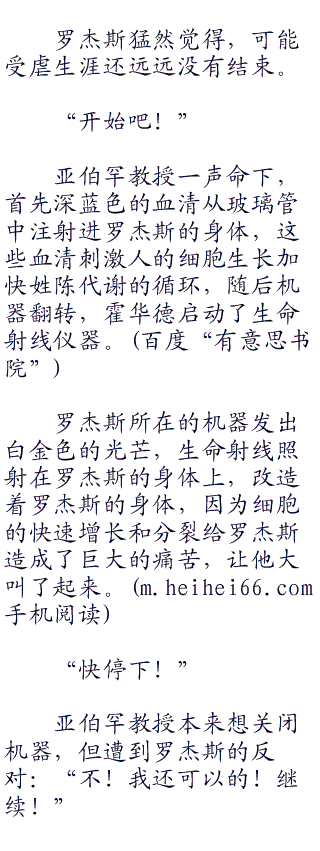 罗杰斯猛然觉得，可能
受虐生涯还远远没有结束。
“开始吧！”
亚伯罕教授一声命下，
首先深蓝色的血清从玻璃管
中注射进罗杰斯的身体，这
些血清刺激人的细胞生长加
快姓陈代谢的循环，随后机
器翻转，霍华德启动了生命
射线仪器。(百度“有意思书
院”)
罗杰斯所在的机器发出
白金色的光芒，生命射线照
射在罗杰斯的身体上，改造
着罗杰斯的身体，因为细胞
的快速增长和分裂给罗杰斯
造成了巨大的痛苦，让他大
叫了起来。(m.heihei66.com
手机阅读)
“快停下！”
亚伯罕教授本来想关闭
机器，但遭到罗杰斯的反
对：“不！我还可以的！继
续！”